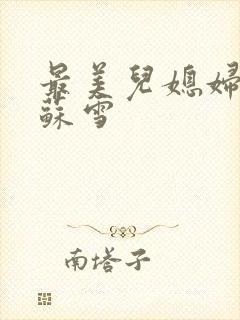 最美兒媳婦
蘇雪
南塔子